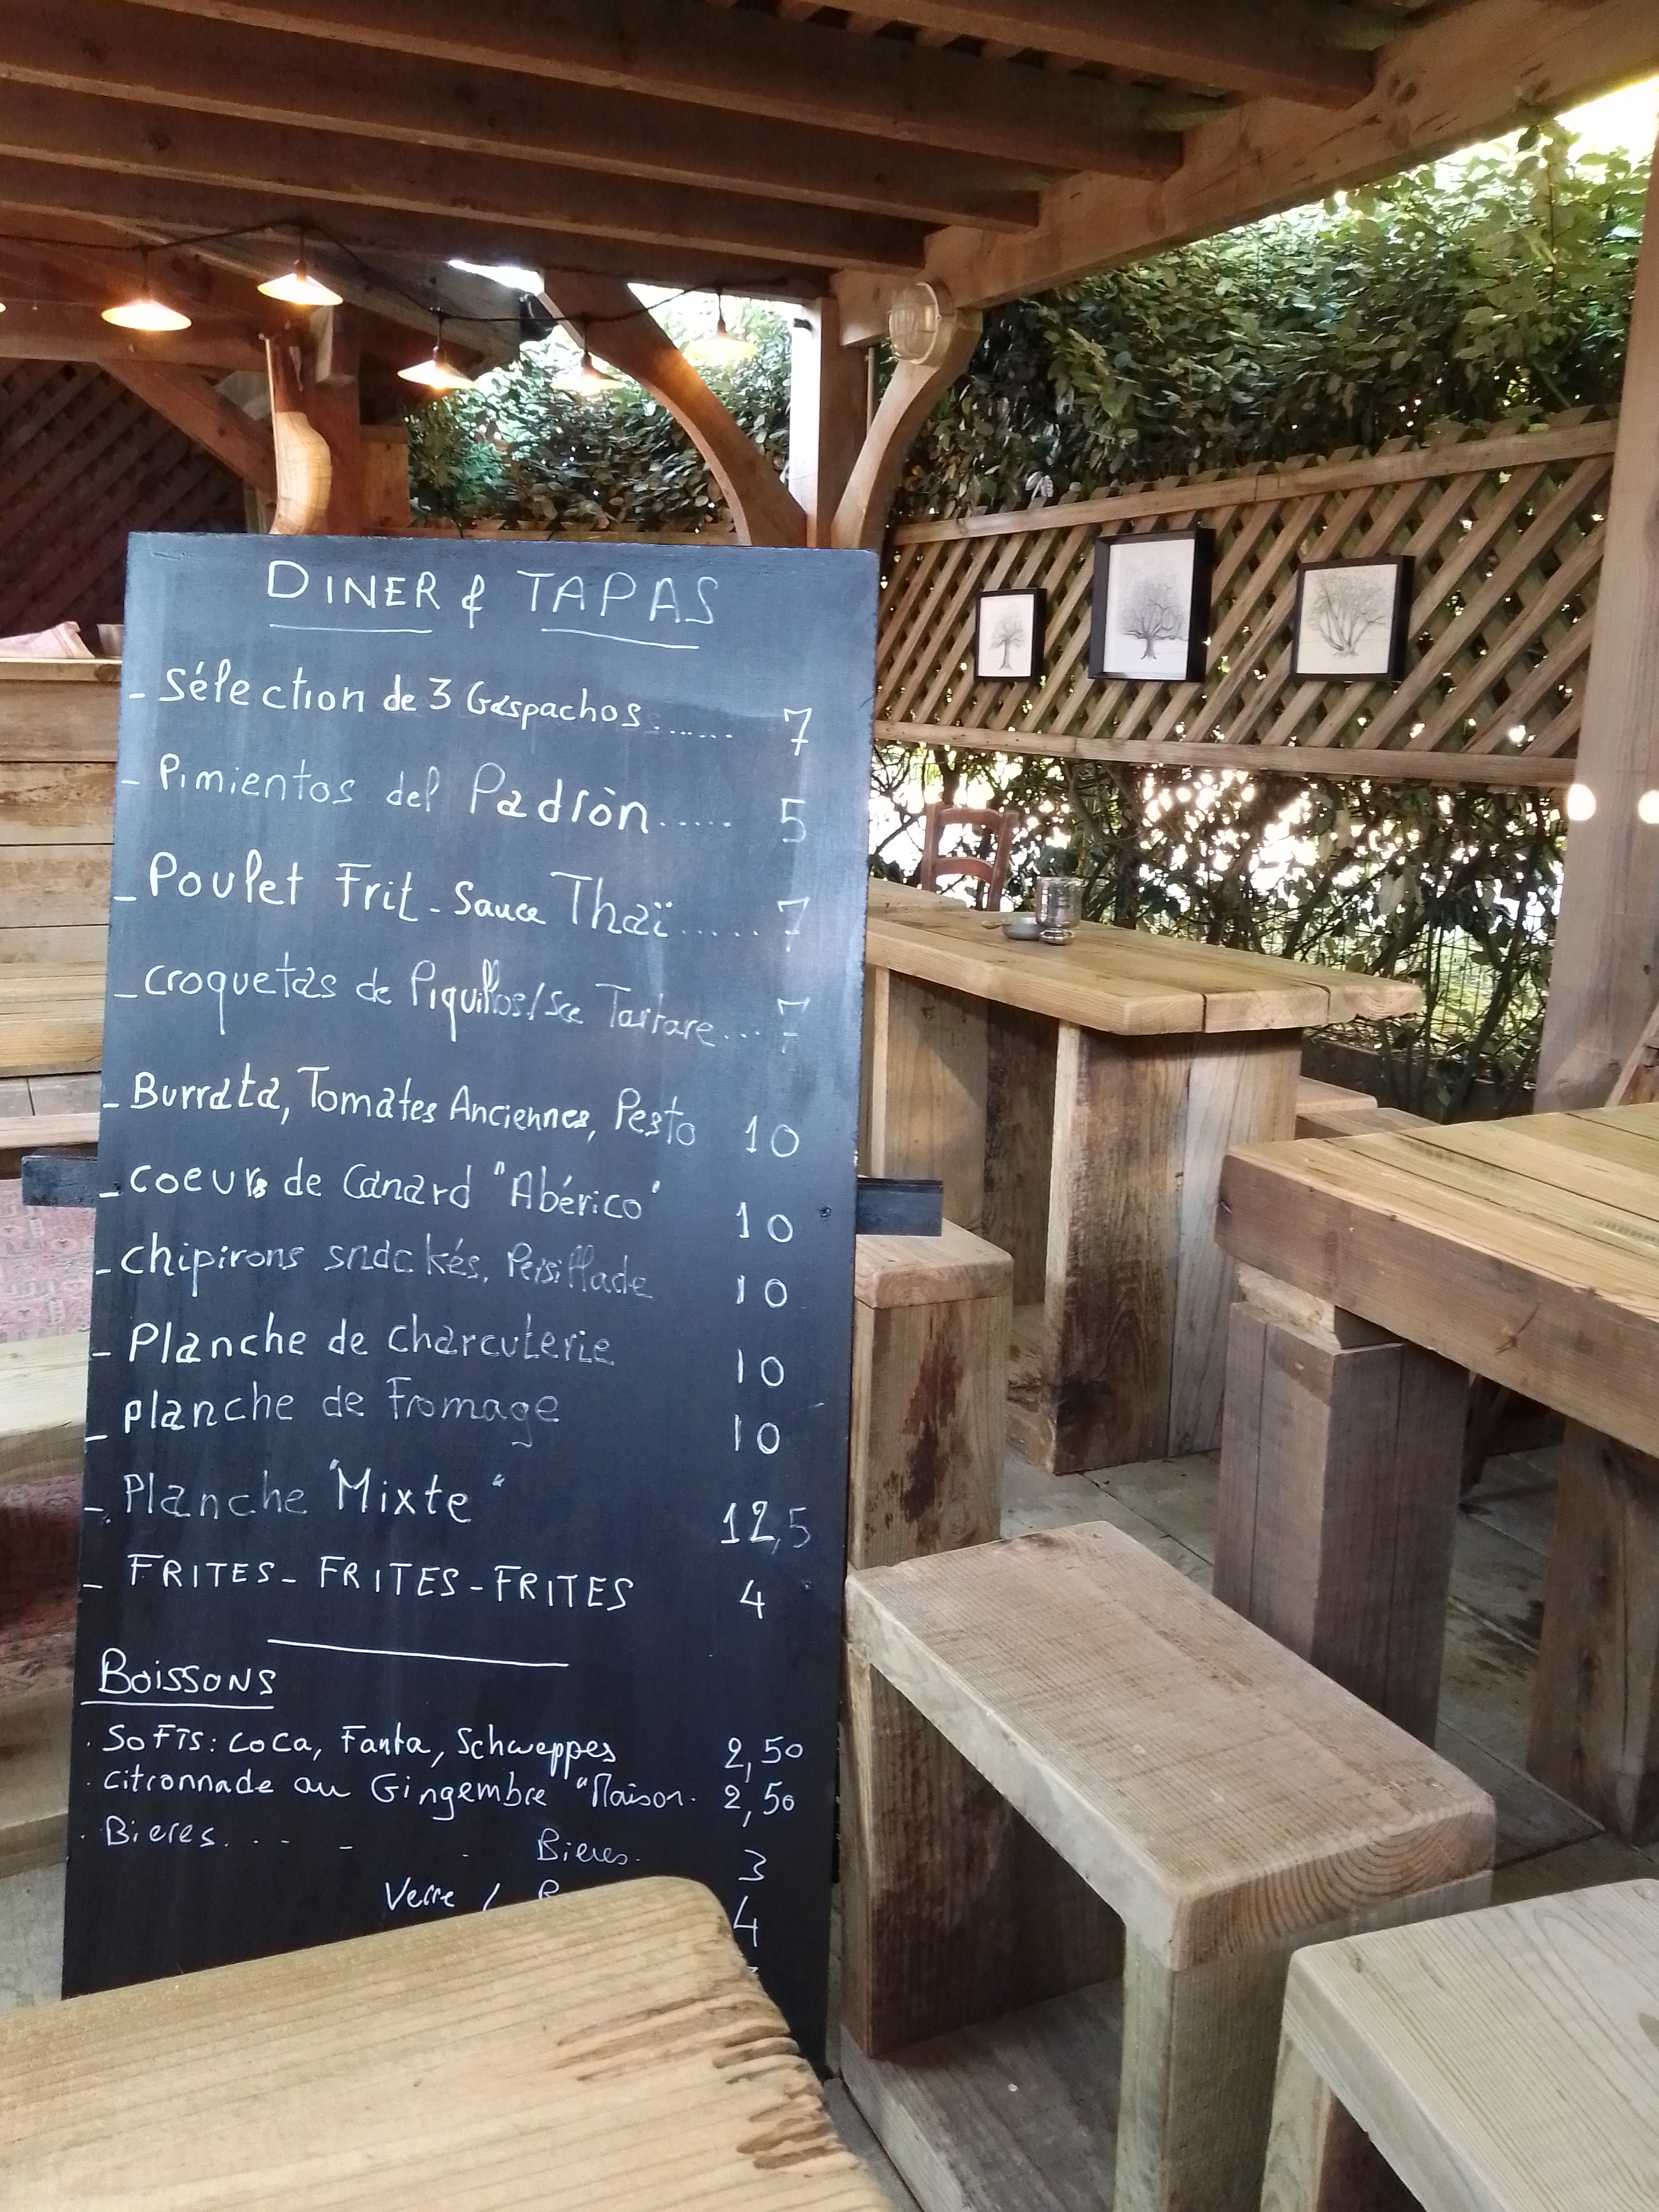 DINER & TAPAS
- Sélection de 3 Gaspachos....... 7
- Pimientos del Padròn..... 5
- Poulet Frit - Sauce Thaï..... 7
- Croquetas de Piquillos/Sce Tartare... 7
- Burrata, Tomates Anciennes, Pesto 10
- Coeurs de Canard "Abérico" 10
- Chipirons snackés, Persillade 10
- Planche de Charcuterie 10
- Planche de Fromage 10
- Planche "Mixte" 12,5
- FRITES - FRITES - FRITES 4
BOISSONS
. SOFTS: COCA, Fanta, Schweppes 2,50
. Citronnade au Gingembre "Maison. 2,50
. Bieres. . - - . Bieres. 3
Verre / 4